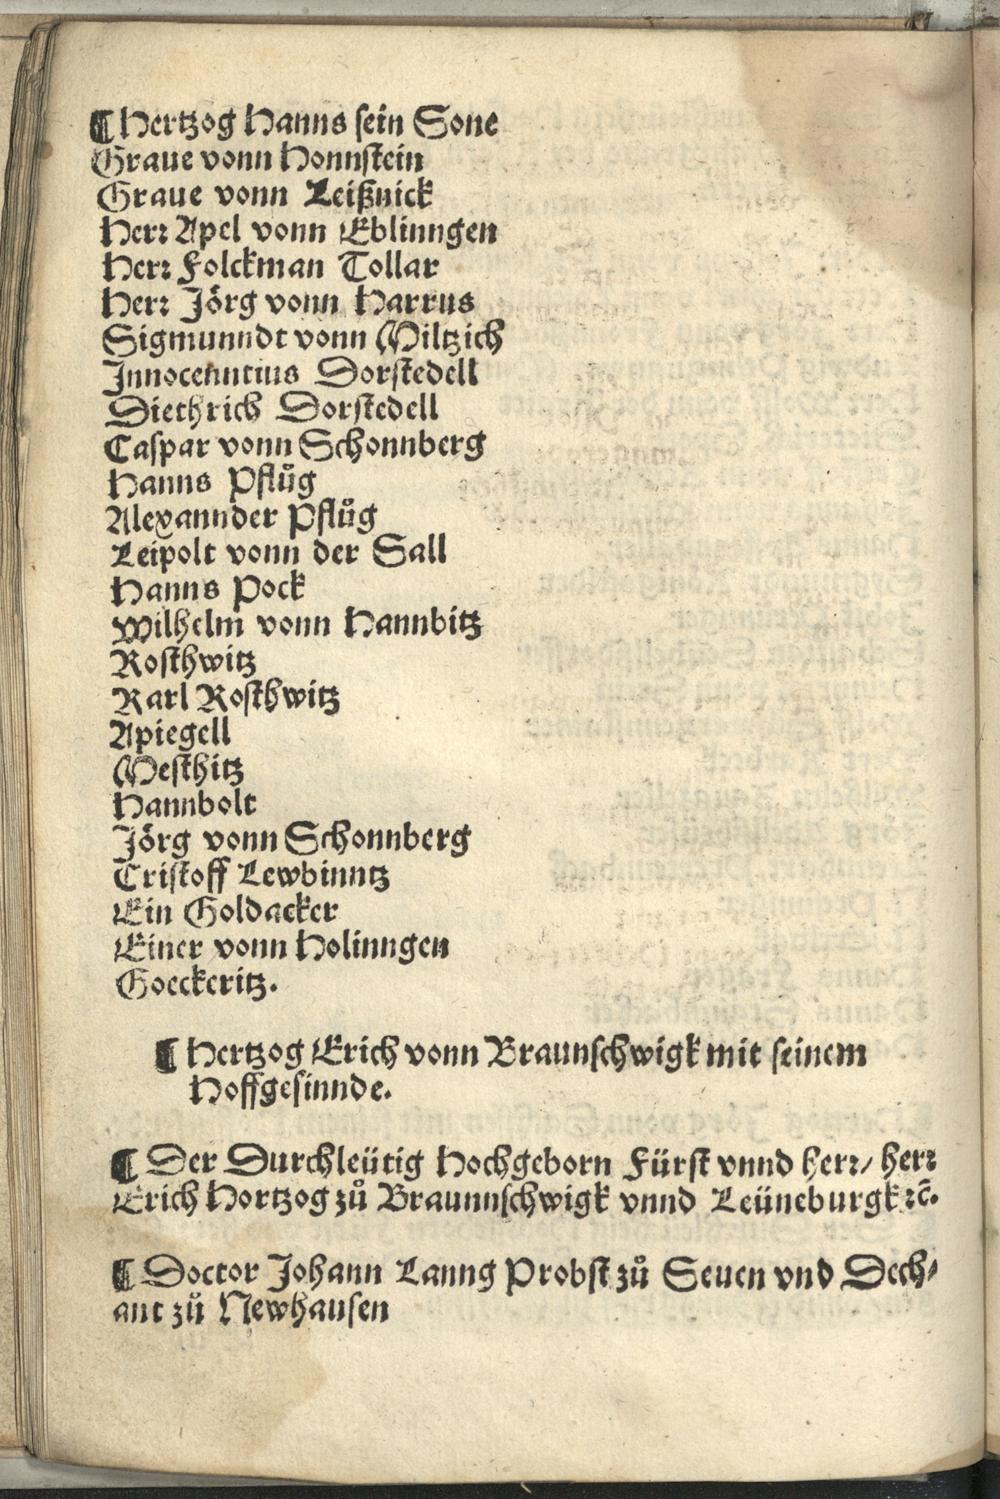 ¶ Hertzog Hanns sein Sone
Graue vonn Honnstein
Graue vonn Leißnick
Herr Apel vonn Eblinngen
Herr Folckman Tollar
Herr Jörg vonn Harrus
Sigmunndt vonn Miltzich
Innocenntius Dorstedell
Diethrich Dorstedell
Caspar vonn Schonnberg
Hanns Pflůg
Alexannder Pflůg
Leipolt vonn der Sall
Hanns Pock
Wilhelm vonn Hannbitz
Rosthwitz
Karl Rosthwitz
Apiegell
Mesthitz
Hannbolt
Jörg vonn Schonnberg
Cristoff Lewbinntz
Ein Goldacker
Einer vonn Holinngen
Goeckeritz.
¶ Hertzog Erich vonn Braunschwigk mit seinem
Hoffgesinnde.
¶ Der Durchleütig Hochgeborn Fürst vnnd herr/ herr
Erich Hortzog zů Braunnschwigk vnnd Leüneburgk ꝛc̄.
¶ Doctor Johann Lanng Probst zů Seuen vnd Dech⸗
ant zů Newhausen